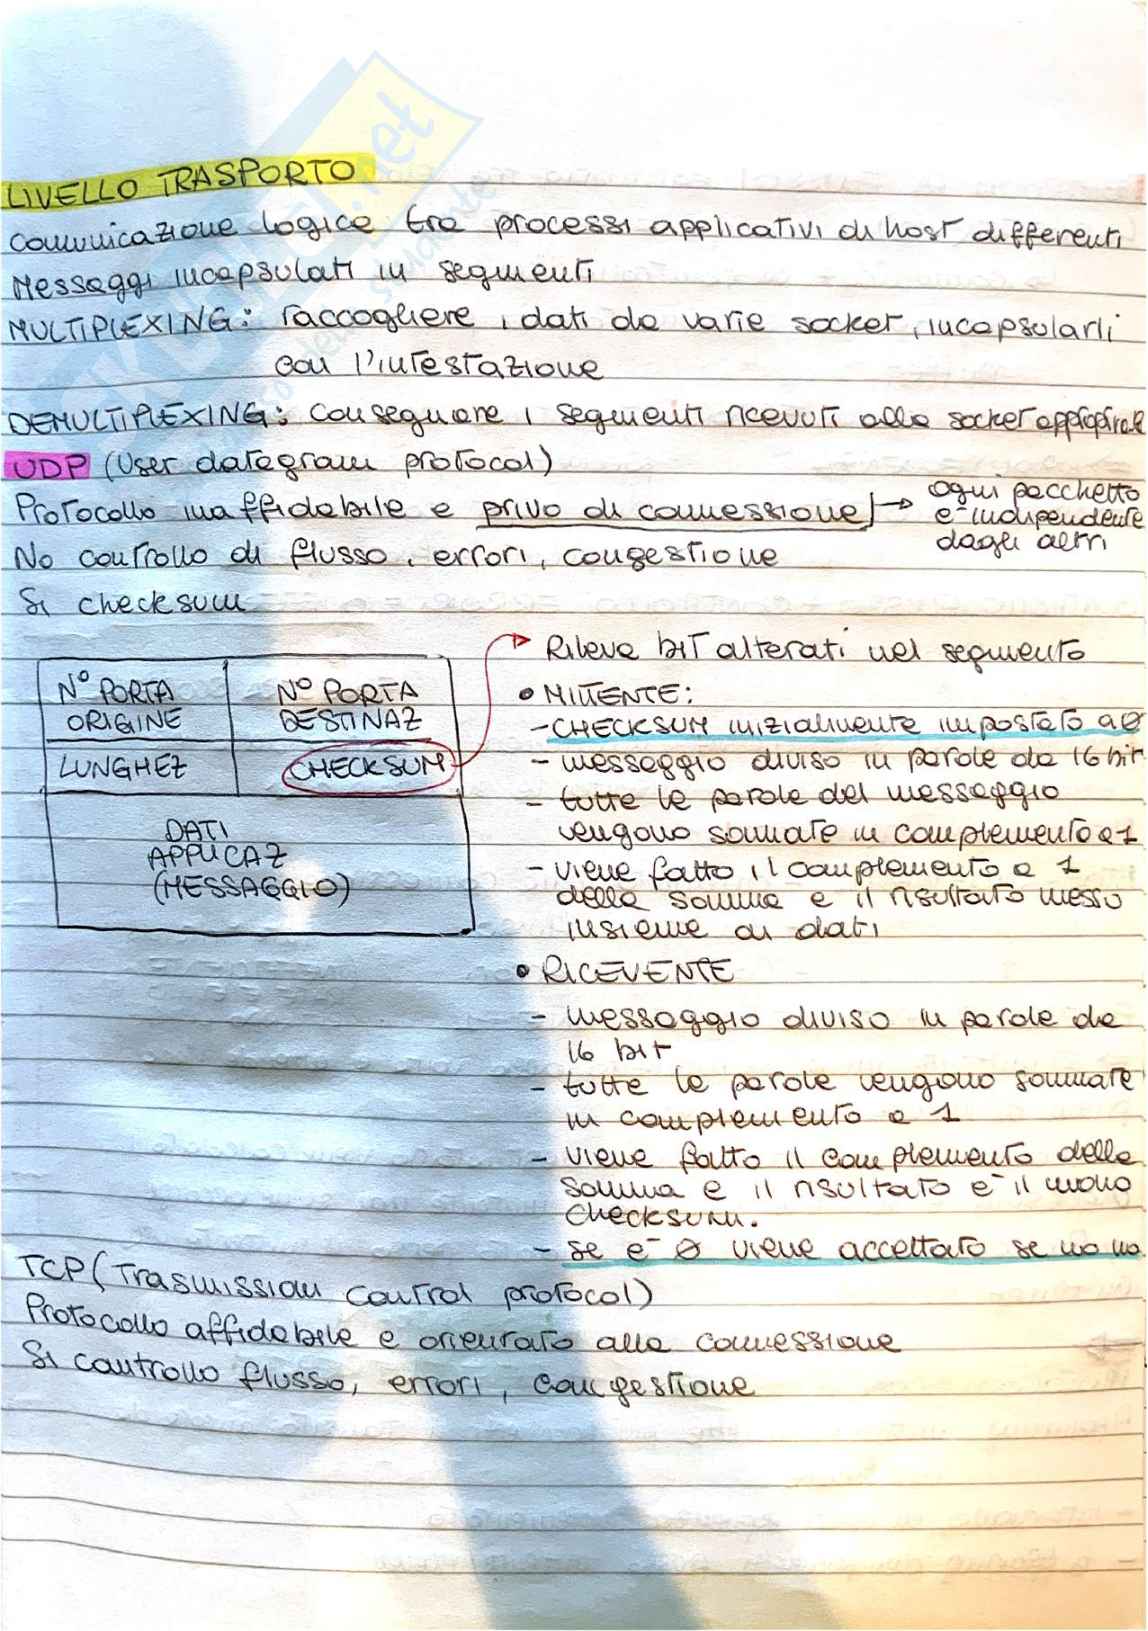 LIVELLO TRASPORTO
comunicazione logica tra processi applicativi di host differenti
Messaggi incapsulati in segmenti
MULTIPLEXING: raccogliere i dati da varie socket, incapsularli
con l'intestazione
DEMULTIPLEXING: consegnare i segmenti ricevuti alla socket appropriata
UDP (User datagram protocol)
Protocollo inaffidabile e privo di connessione → ogni pacchetto
è indipendente
dagli altri
No controllo di flusso, errori, congestione
Si checksum
N° PORTA
ORIGINE
N° PORTA
DESTINAZ
LUNGHEZ
CHECKSUM
DATI
APPLICAZ
(MESSAGGIO)
Rileva bit alterati nel segmento
• MITTENTE:
- CHECKSUM inizialmente impostato a 0
- messaggio diviso in parole da 16 bit
- tutte le parole del messaggio
vengono sommate in complemento a 1
- viene fatto il complemento a 1
della somma e il risultato messo
insieme ai dati
• RICEVENTE
- messaggio diviso in parole da
16 bit
- tutte le parole vengono sommate
in complemento a 1
- viene fatto il complemento della
somma e il risultato è il nuovo
checksum.
- se è 0 viene accettato se no no
TCP (Trasmission control protocol)
Protocollo affidabile e orientato alla connessione
Si controllo flusso, errori, congestione